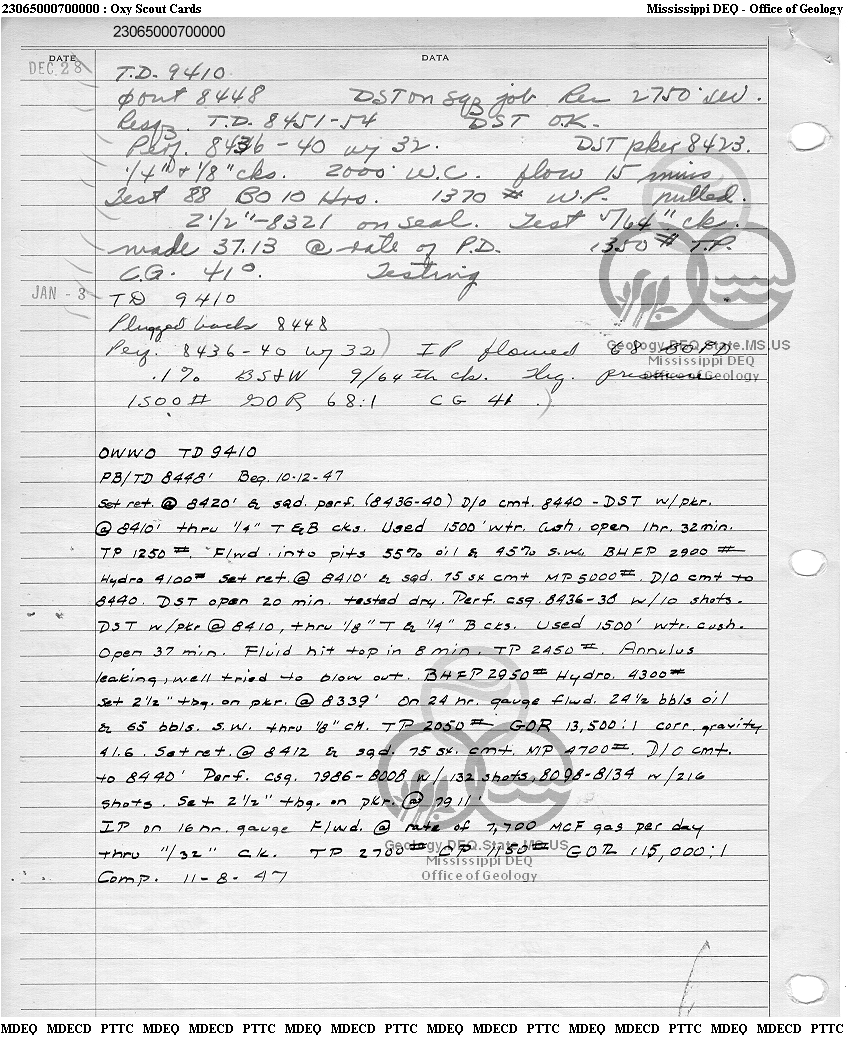 23065000700000 : Oxy Scout Cards
Mississippi DEQ - Office of Geology
23065000700000
DATE
DATA
DEC 28
T.D. 9410
out 8448 DST on sqz job Rec 2750'
Resqz. T.D. 8451-54 DST O.K.
Perf. 8436-40 w/ 32. DST pker 8423.
1/4" + 1/8" cks. 2000' W.C. flow 15 mins
Test 88 BO 10 Hrs. 1370 # W.P. pulled.
2 1/2"-8321 on seal. Test 5/64" ck.
made 37.13 @ rate of P.D. 1350 # T.P.
C.G. 41°. Testing
JAN - 3
TD 9410
Plugged back 8448
Perf. 8436-40 w/ 32) IP flowed 68 BOPD
.1% BS&W 9/64th ck. Tbg. pressure
1500# GOR 68:1 CG 41.)
Geology.DEQ.State.MS.US
Mississippi DEQ
Office of Geology
OWWO TD 9410
PB/TD 8448' Beg. 10-12-47
Set ret. @ 8420' & sqd. perf. (8436-40) D/o cmt. 8440 - DST w/pkr.
@ 8410' thru 1/4" T & B cks. Used 1500' wtr. Cush, open 1hr. 32min.
TP 1250 #. Flwd. into pits 55% oil & 45% s.w. BHFP 2900 #
Hydro 4100# Set ret. @ 8410' & sqd. 75 sx cmt MP 5000#. D/o cmt to
8440. DST open 20 min. tested dry. Perf. csg. 8436-38 w/10 shots.
DST w/pkr @ 8410, thru 1/8" T & 1/4" B cks. Used 1500' wtr. cush.
Open 37 min. Fluid hit top in 8 min. TP 2450 #. Annulus
leaking, well tried to blow out. BHFP 2950# Hydro. 4300#
Set 2 1/2" tbg. on pkr. @ 8339' On 24 hr. gauge flwd. 24 1/2 bbls oil
& 65 bbls. s.w. thru 1/8" CK. TP 2050 # GOR 13,500:1 corr. gravity
41.6. Set ret. @ 8412 & sqd. 75 sx. cmt. MP 4700#. D/o cmt.
to 8440' Perf. csg. 7986-8008 w/132 shots, 8098-8134 w/216
shots. Set 2 1/2" tbg. on pkr. @ 7911'
IP on 16 hr. gauge Flwd. @ rate of 7,700 MCF gas per day
thru "/32" CK. TP 2700# CP 1150# GOR 115,000:1
Geology.DEQ.State.MS.US
Mississippi DEQ
Office of Geology
Comp. 11-8-47
MDEQ MDECD PTTC MDEQ MDECD PTTC MDEQ MDECD PTTC MDEQ MDECD PTTC MDEQ MDECD PTTC MDEQ MDECD PTTC